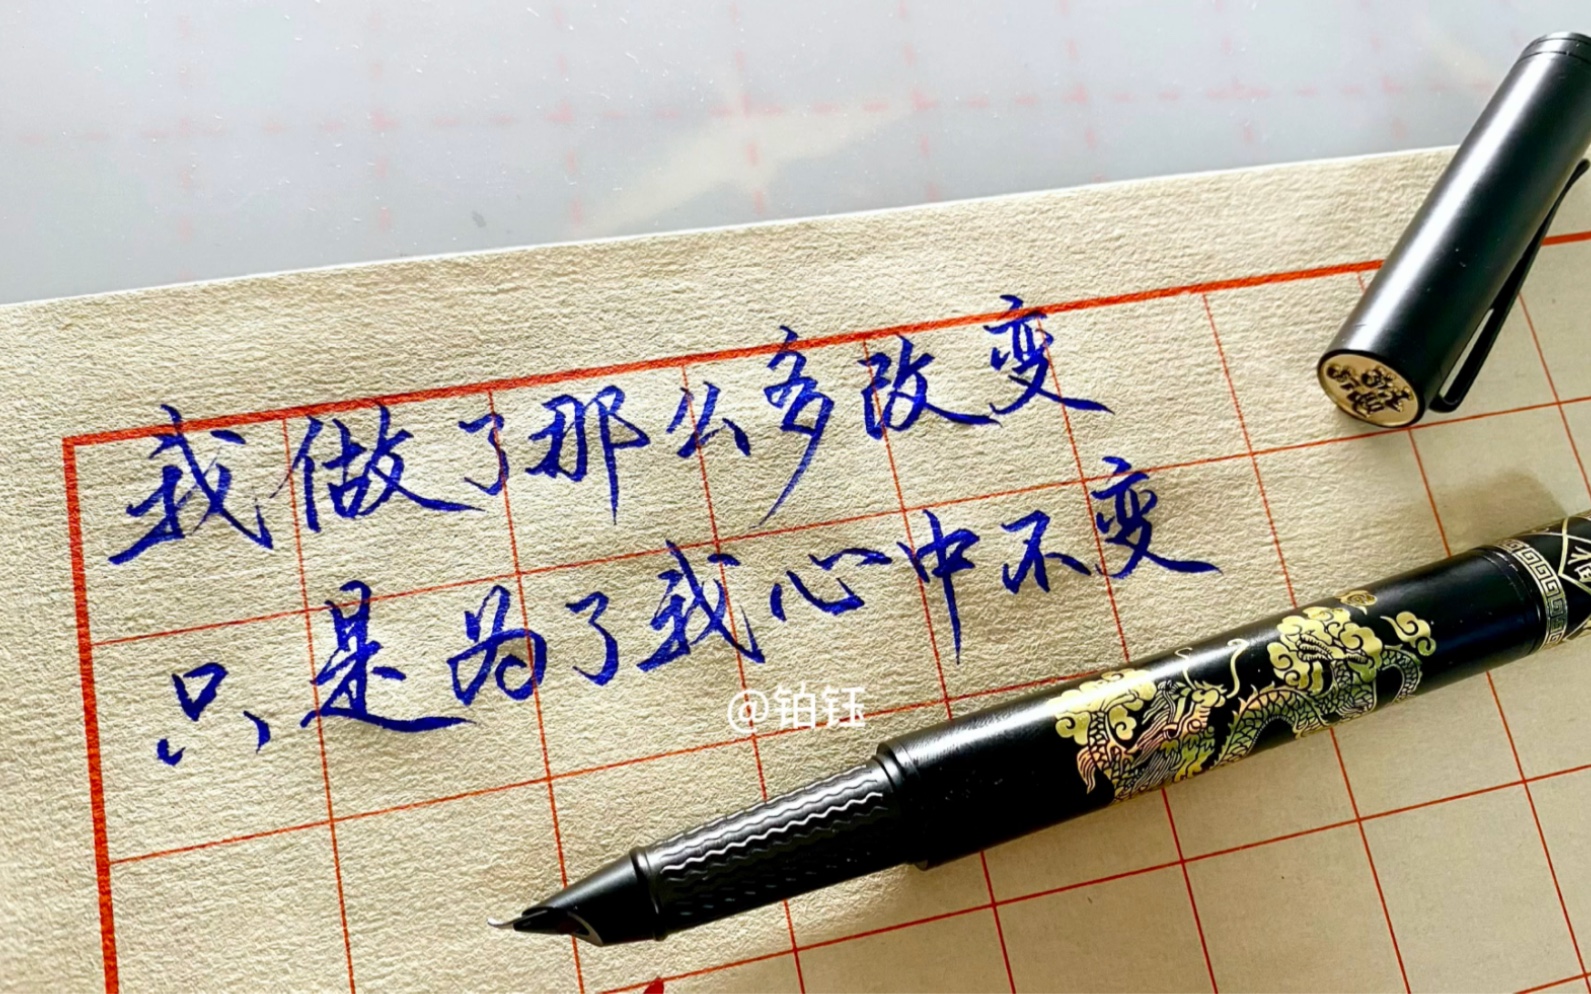 我做了那么多改变
只是为了我心中不变
@铂钰